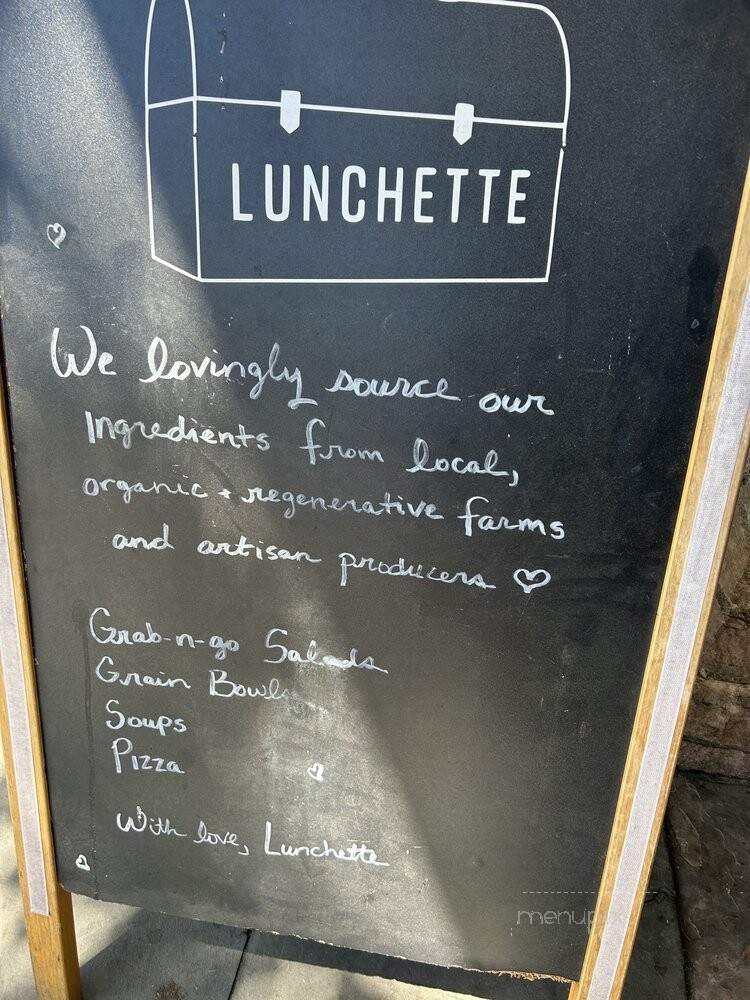 LUNCHETTE
We lovingly source our
Ingredients from local,
organic + regenerative farms
and artisan producers ♡
Grab-n-go Salads
Grain Bowls
Soups
Pizza
With love, Lunchette